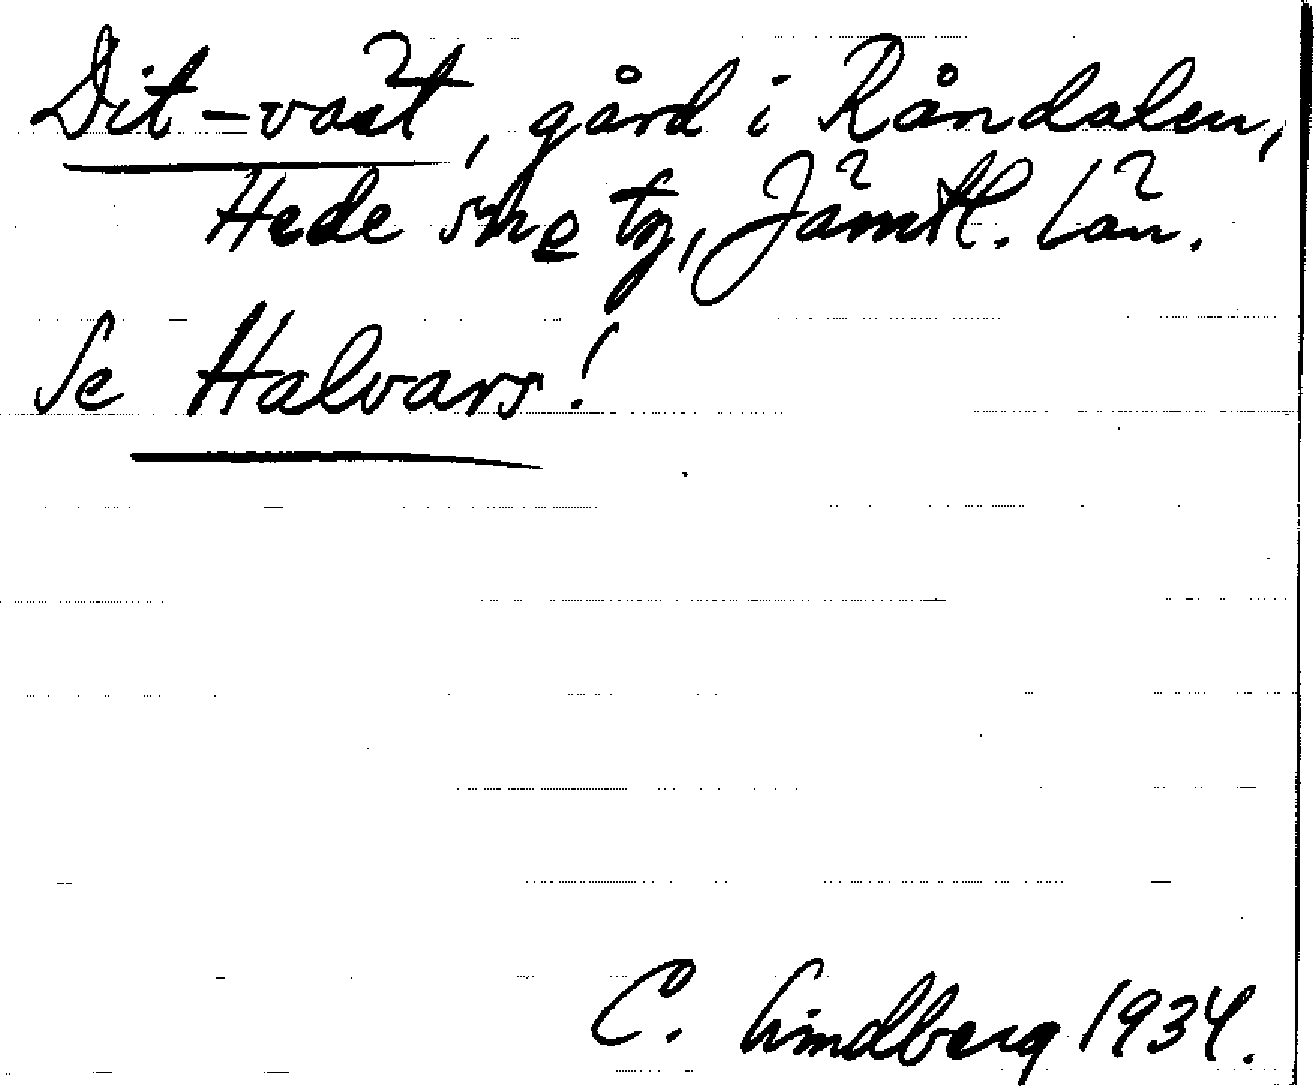 Dit-väst, gård i Råndalen,
Hede sn o tg, Jämtl. län.
Se Halvars!
C. Lindberg 1934.